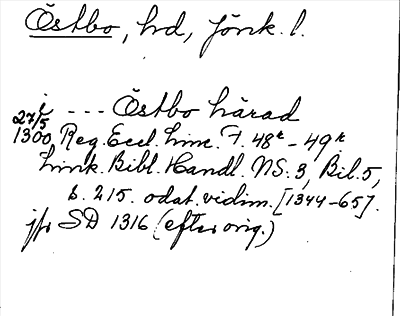 Östbo, hd, Jönk. l.
i --- Östbo härad
27/5
1300 Reg. Eccl. Linc. F. 48r - 49r
Link. Bibl. Handl. NS. 3, Bil. 5,
s. 215. odat. vidim. [1344-65].
jfr SD 1316 (efter orig.)